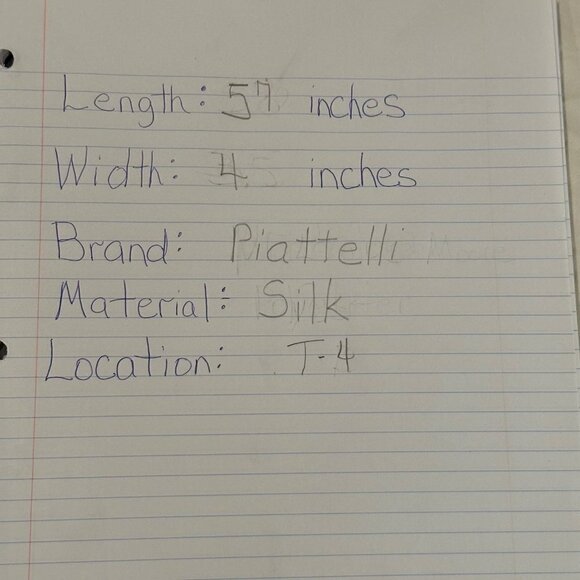 Length: 57 inches
Width: 4 inches
Brand: Piattelli
Material: Silk
Location: T-4